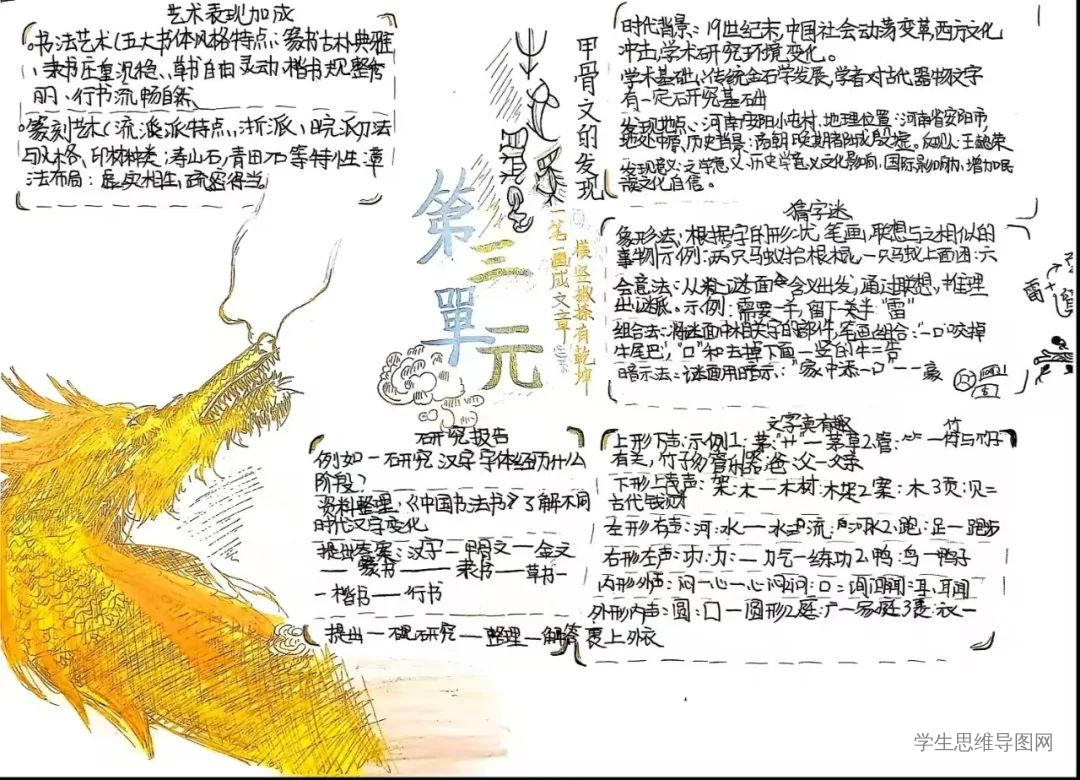 艺术表现加成
书法艺术(五大书体风格特点:篆书古朴典雅
、隶书庄重沉稳、草书自由灵动、楷书规整秀
丽、行书流畅自然、
篆刻艺术(流派派特点、浙派、皖派刀法
与风格、印材种类:寿山石、青田石等特性章
法布局:虚实相生,疏密得当。
甲骨文的发现
第三單元
橫竖撇捺有乾坤
一笔一画成文章
时代背景:19世纪末,中国社会动荡变革,西方文化
冲击,学术研究环境变化。
学术基础:传统金石学发展,学者对古代器物文字
有一定石研究基础
发现地点:河南安阳小屯村,地理位置:河南省安阳市,
地处中原,历史背景:商朝晚期都成殷墟。发现人:王懿荣
发现意义:文学意义,历史学意义文化影响,国际影响,增加民
族文化自信。
猜字迷
象形法:根据字的形状、笔画,联想与之相似的
事物示例:两只马蚁抬根棍,一只马蚁上面困:六
会意法:从谜面含义出发,通过联想、推理
出谜底。示例:需要一半,留下一半"雷"
组合法:将迷面中相关字的部件,笔画组合:"一口咬掉
牛尾巴","口"和去掉下面一竖的牛=告
暗示法:谜面用暗示:"家中添一口"——豪
雷
研究报告
例如一石研究汉字字体经历什么
阶段?
资料整理:《中国书法书》了解不同
时代汉字变化
提出答案:汉字—甲骨文—金文
—篆书——隶书—草书-
-楷书—行书
提出—石研究—整理—解答
文字真有趣
上形下声:示例1:茅"艹"—茅草2管:⺮—竹与竹子
有关,竹子为管乐器,爸:父—父亲
下形上声:架:木—木材:木架2案:木3页:贝=
古代钱财
左形右声:河:水—水流:河水2跑:足—跑步
右形左声:功:力:—力气—练功2鸭:鸟—鸭子
内形外声:闷—心—心闷闷:口:闻:耳,耳闻
外形内声:圆:囗—圆形2庭:广—家庭3裹:衣—
裹上外衣
学生思维导图网